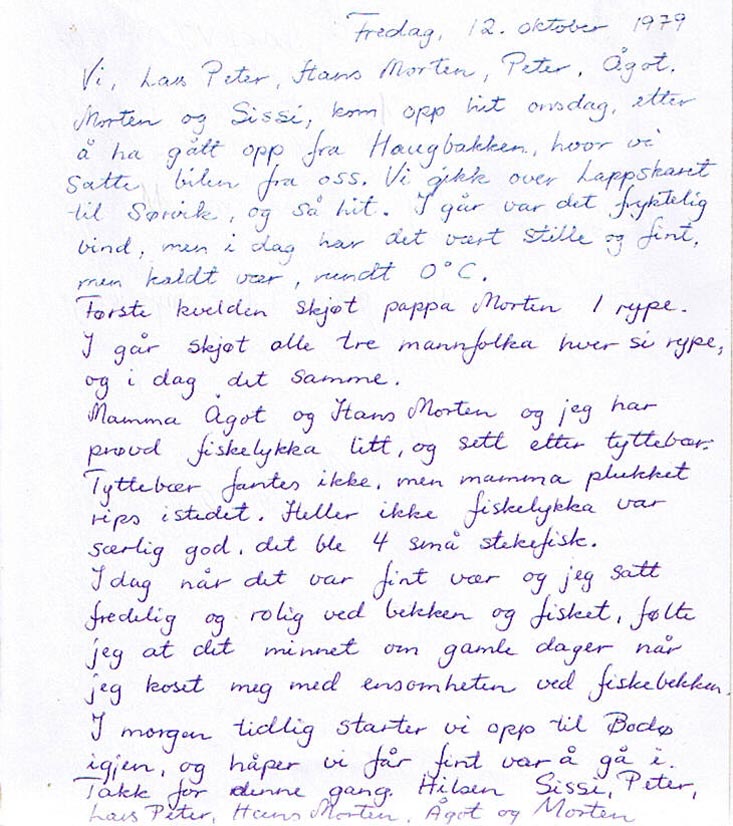 Fredag, 12. oktober 1979
Vi, Lars Peter, Hans Morten, Peter, Ågot,
Morten og Sissi, kom opp hit onsdag, etter
å ha gått opp fra Haugbakken, hvor vi
satte bilen fra oss. Vi gikk over Lappskaret
til Sørvik, og så hit. I går var det fryktelig
vind, men i dag har det vært stille og fint,
men kaldt vær, rundt 0°C.
Første kvelden skjøt pappa Morten 1 rype.
I går skjøt alle tre mannfolka hver si rype,
og i dag det samme.
Mamma Ågot og Hans Morten og jeg har
prøvd fiskelykka litt, og sett etter tyttebær.
Tyttebær fantes ikke, men mamma plukket
rips istedet. Heller ikke fiskelykka var
særlig god, det ble 4 små stekefisk.
I dag når det var fint vær og jeg satt
fredelig og rolig ved bekken og fisket, følte
jeg at det minnet om gamle dager når
jeg koset meg med ensomheten ved fiskebekken.
I morgen tidlig starter vi opp til Bodø
igjen, og håper vi får fint vær å gå i.
Takk for denne gang. Hilsen Sissi, Peter,
Lars Peter, Hans Morten, Ågot og Morten